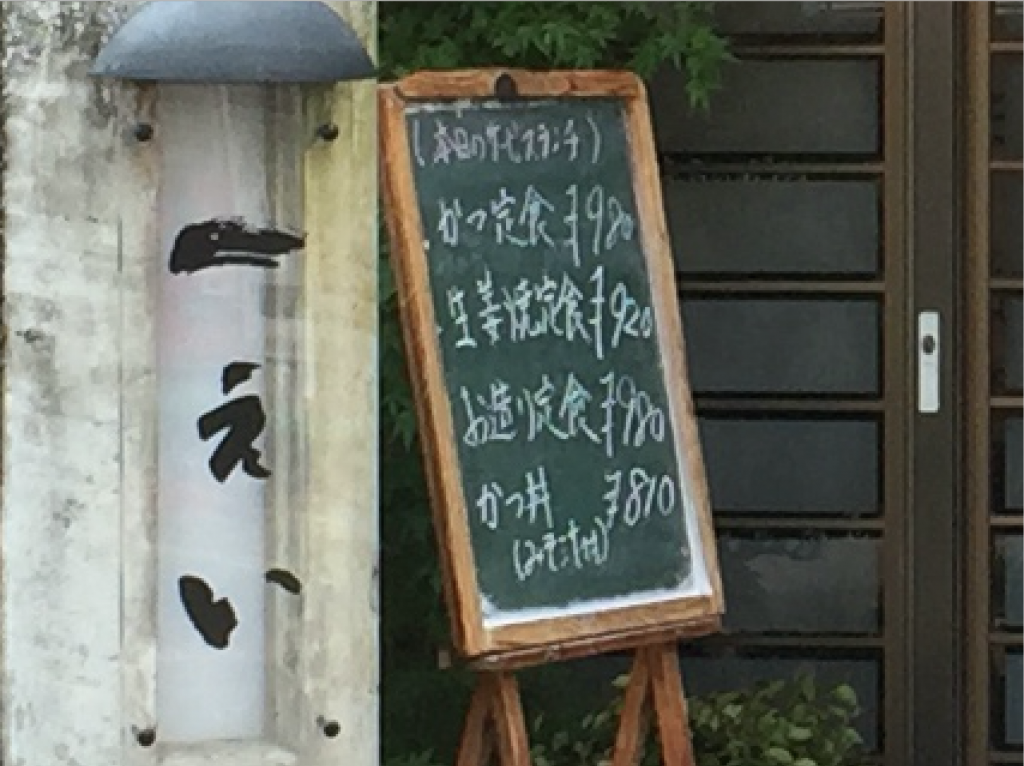 一えい
(本日のサービスランチ)
・かつ定食 ¥980
・生姜焼定食 ¥920
お造り定食 ¥980
かつ丼 ¥870
(みそ汁付)